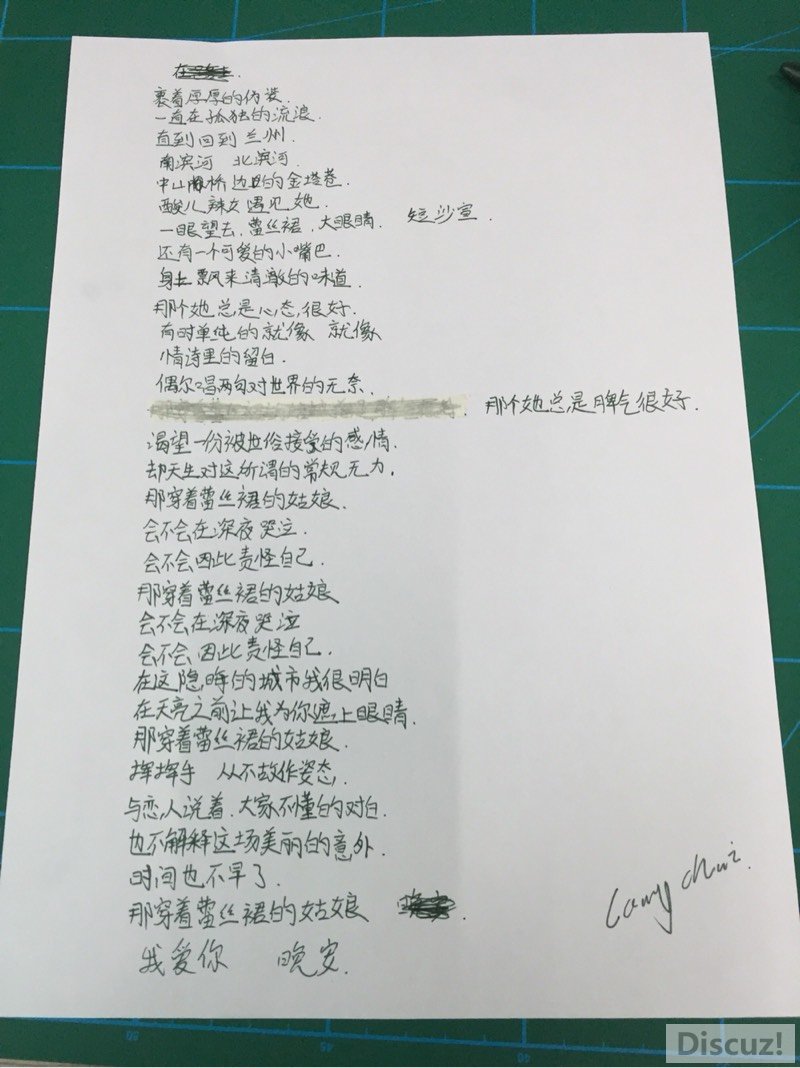 裹着厚厚的伪装.
一直在孤独的流浪.
直到回到兰州.
南滨河 北滨河.
中山桥边的金塔巷.
酸儿辣女遇见她.
一眼望去,蕾丝裙,大眼睛. 短沙宣.
还有一个可爱的小嘴巴.
身上飘来清澈的味道.
那个她总是心态很好.
有时单纯的就像 就像
情诗里的留白.
偶尔唱两句对世界的无奈.
那个她总是脾气很好.
渴望一份被世俗接受的感情.
却天生对这所谓的常规无力.
那穿着蕾丝裙的姑娘.
会不会在深夜哭泣.
会不会因此责怪自己.
那穿着蕾丝裙的姑娘
会不会在深夜哭泣
会不会因此责怪自己.
在这隐晦的城市我很明白
在天亮之前让我为你遮上眼睛.
那穿着蕾丝裙的姑娘.
挥挥手 从不故作姿态.
与恋人说着.大家不懂的对白.
也不解释这场美丽的意外.
时间也不早了.
那穿着蕾丝裙的姑娘 .
我爱你 晚安.
Discuz!